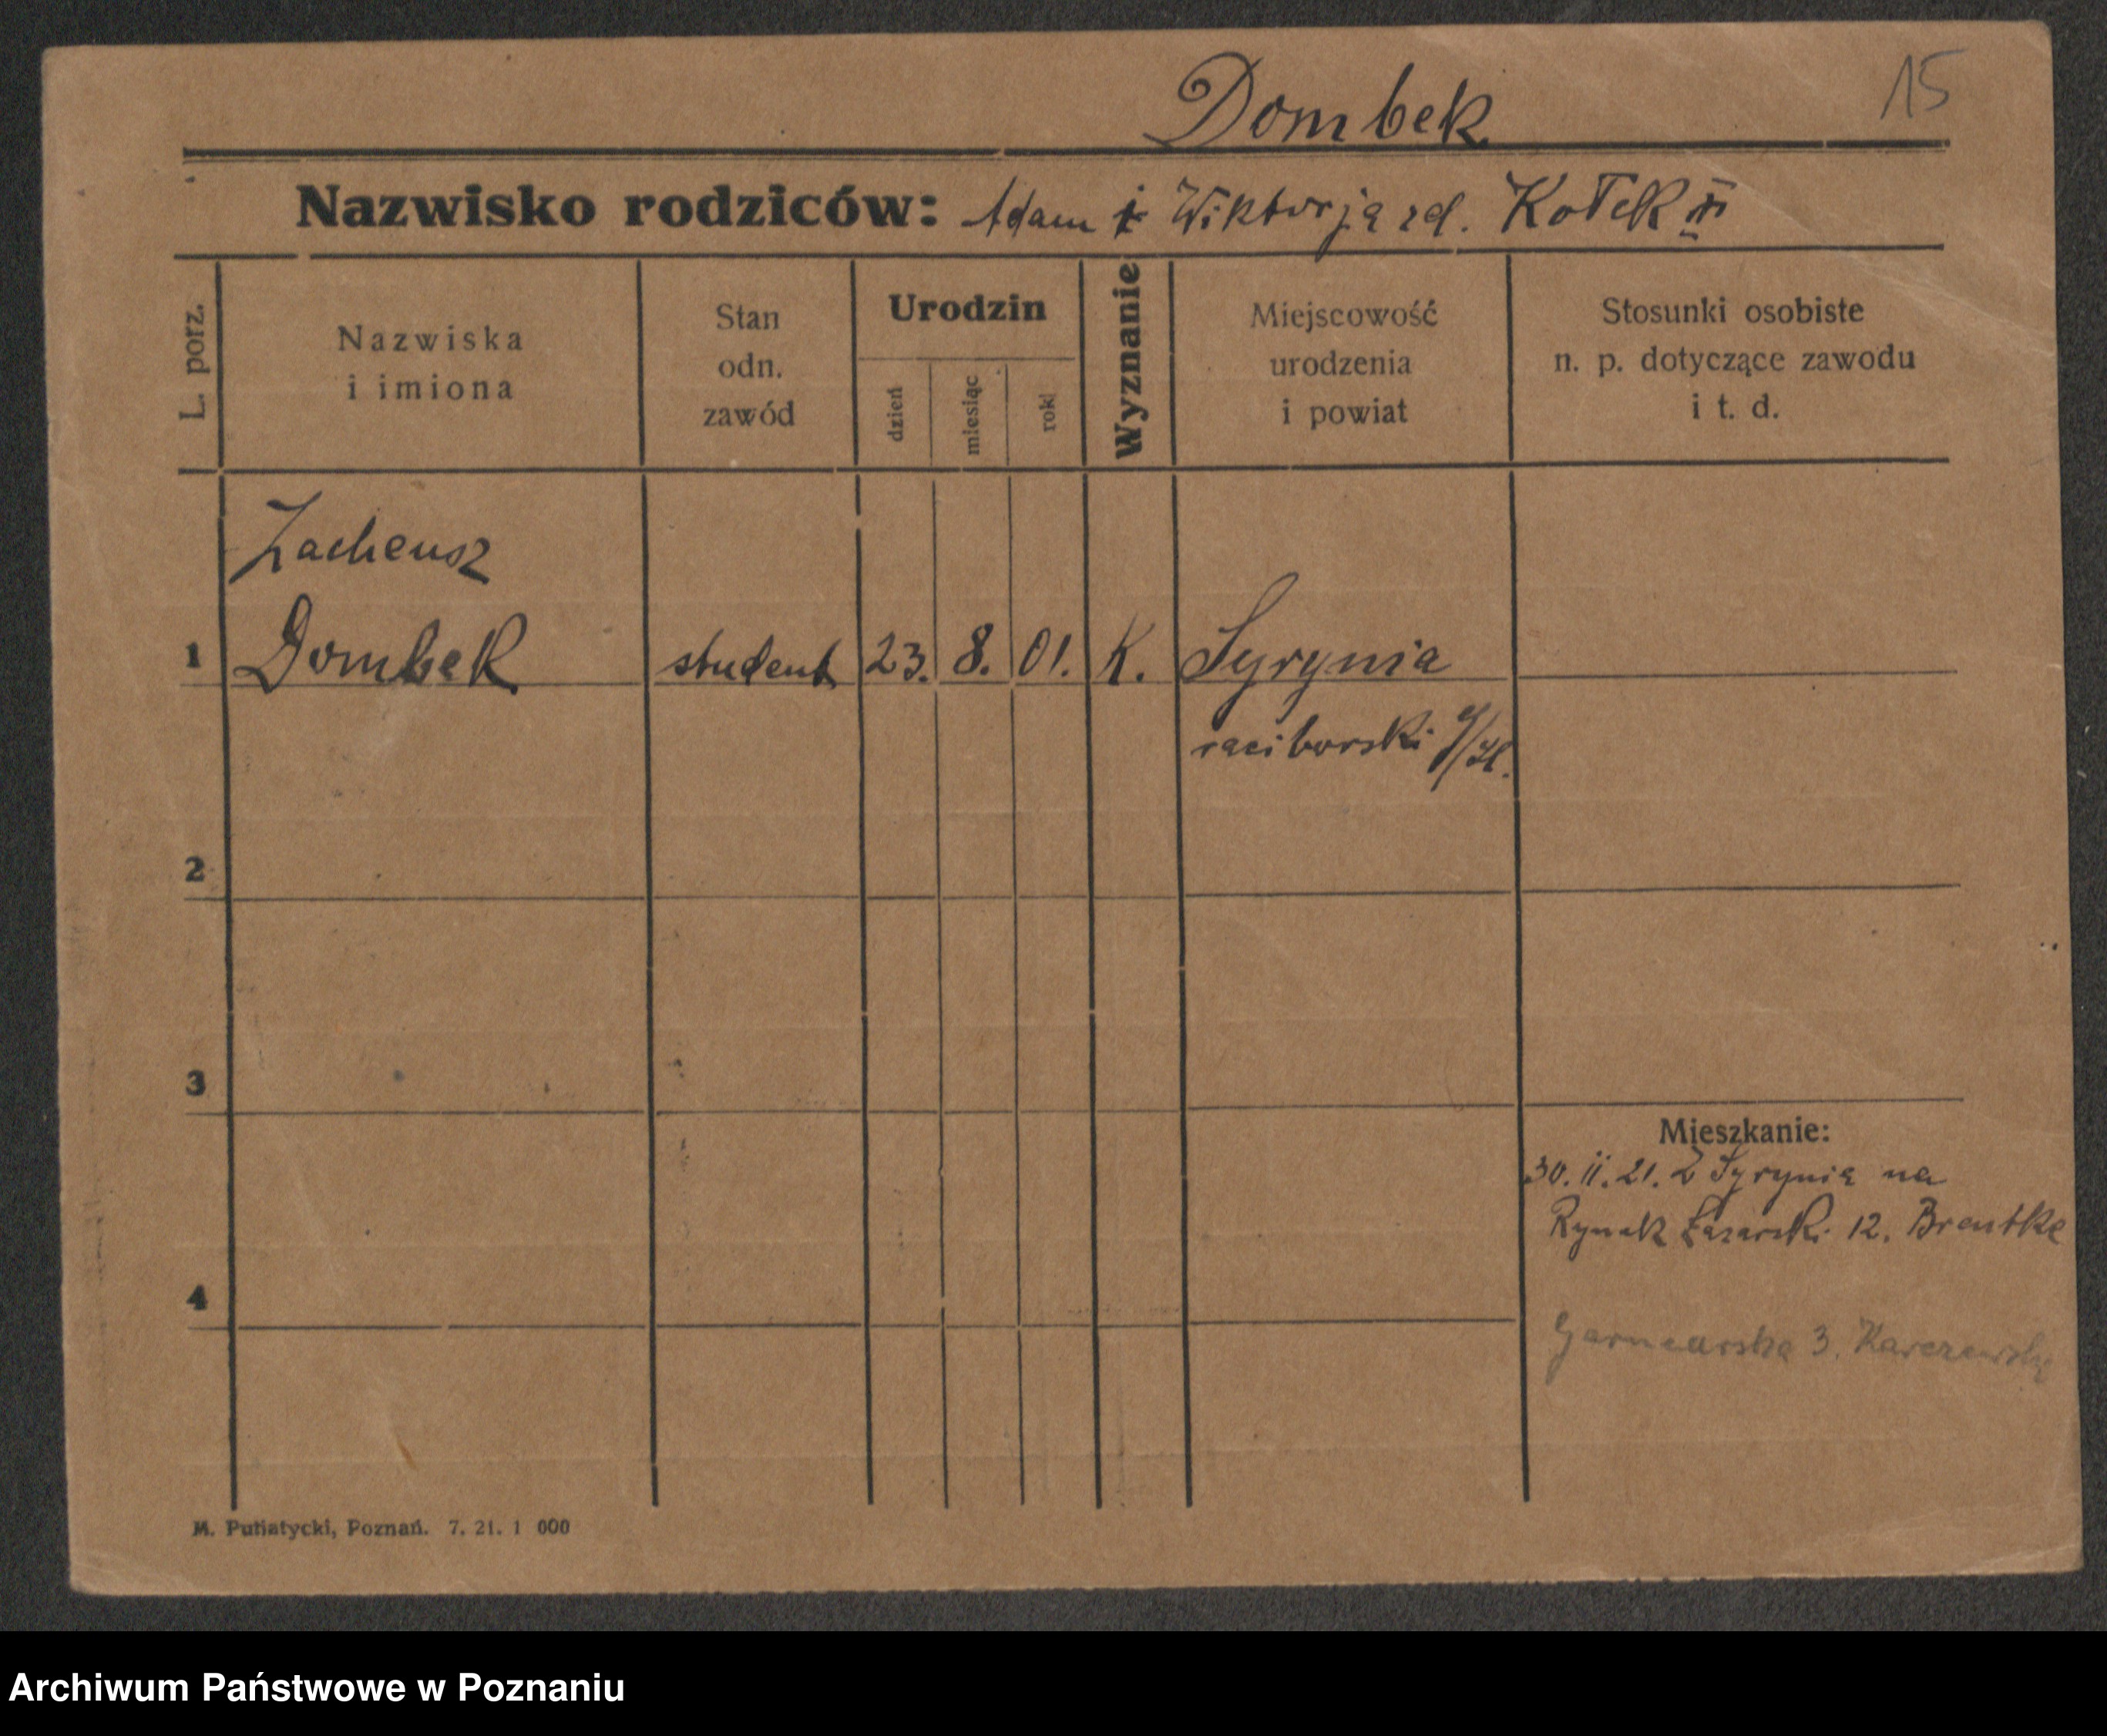 Dombek
15
Nazwisko rodziców: Adam i Wiktorja zd. Kołek
L. porz.
Nazwiska i imiona
Stan odn. zawód
Urodzin
dzień
miesiąc
rok
Wyznanie
Miejscowość urodzenia i powiat
Stosunki osobiste n. p. dotyczące zawodu i t. d.
Zacheusz
1 Dombek student 23. 8. 01. K. Syrynia
raciborski G/Śl.
2
3
Mieszkanie:
30. 11. 21. Z Syrynia na
Rynek Łazarski 12. Brentke
4
Garncarska 3.
M. Putiatycki, Poznań. 7. 21. 1 000
Archiwum Państwowe w Poznaniu